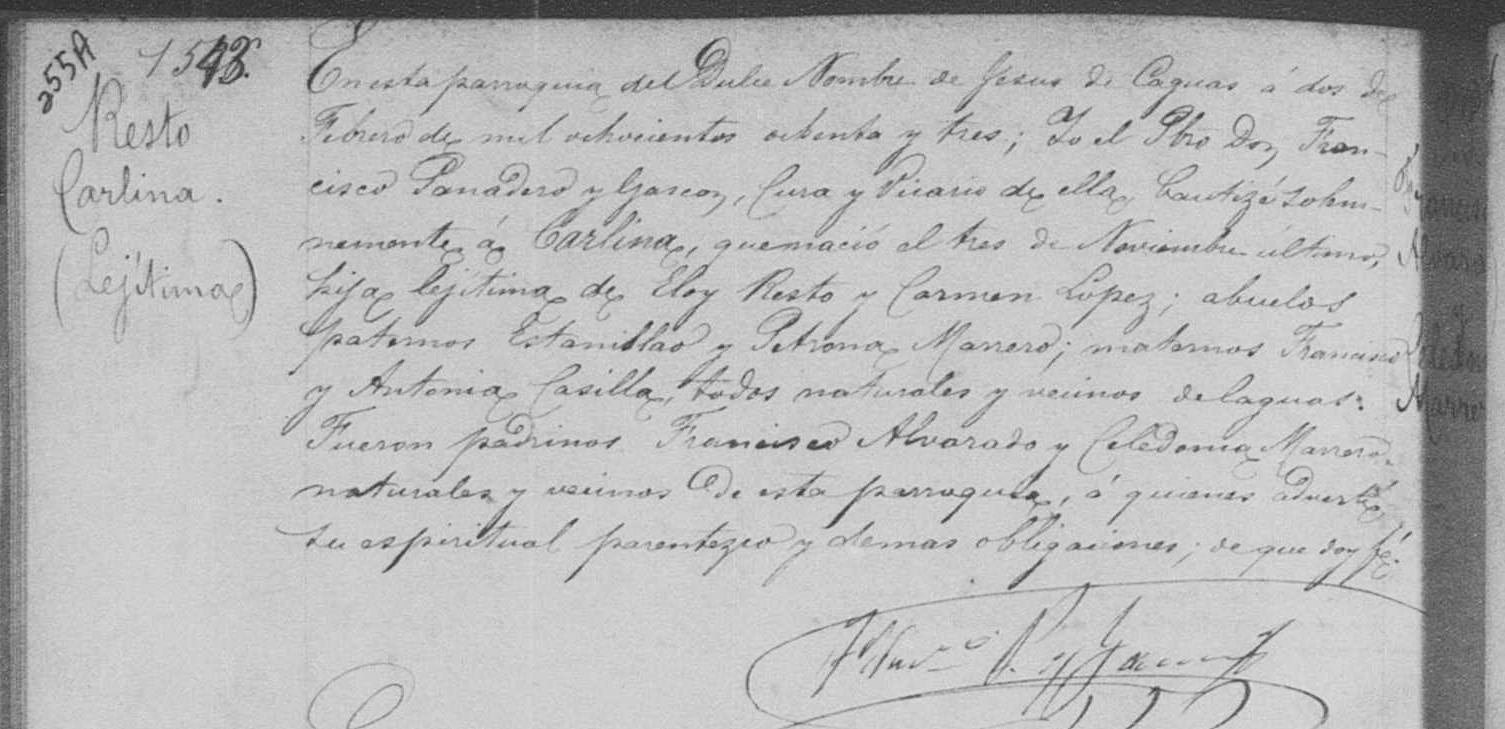 255A
1543.
Resto
Carlina.
(Lejítima)
En esta parroquia del Dulce Nombre de Jesus de Caguas á dos de
Febrero de mil ochocientos ochenta y tres; Yo el Pbro Don Fran-
cisco Panadero y Gascon, Cura y Vicario de ella, bautizé solem-
nemente á Carlina, que nació el tres de Noviembre último,
hija lejítima de Eloy Resto y Carmen Lopez; abuelos
paternos Estanislao y Petrona Marrero; maternos Francisco
y Antonia Casilla, todos naturales y vecinos de Caguas.
Fueron padrinos Francisco Alvarado y Celedonia Marrero,
naturales y vecinos de esta parroquia, á quienes advertí
su espiritual parentezco y demas obligaciones; de que doy fé.
P. y Gascon